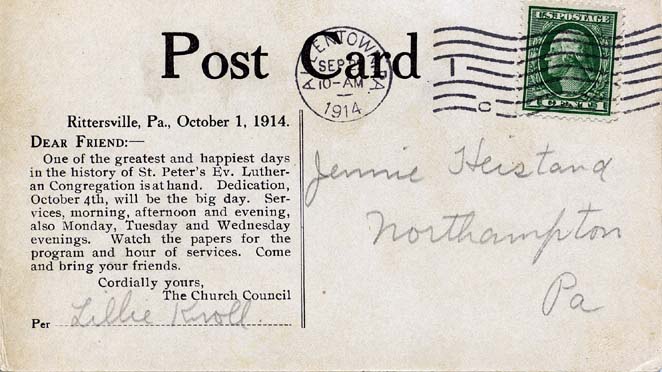 Post Card
ALLENTOWN, PA.
SEP
10-AM
1914
U.S. POSTAGE
1 CENT 1
Rittersville, Pa., October 1, 1914.
DEAR FRIEND:—
One of the greatest and happiest days
in the history of St. Peter's Ev. Luther-
an Congregation is at hand. Dedication,
October 4th, will be the big day. Ser-
vices, morning, afternoon and evening,
also Monday, Tuesday and Wednesday
evenings. Watch the papers for the
program and hour of services. Come
and bring your friends.
Cordially yours,
The Church Council
Per Lillie Kroll
Jennie Heistand
Northampton
Pa